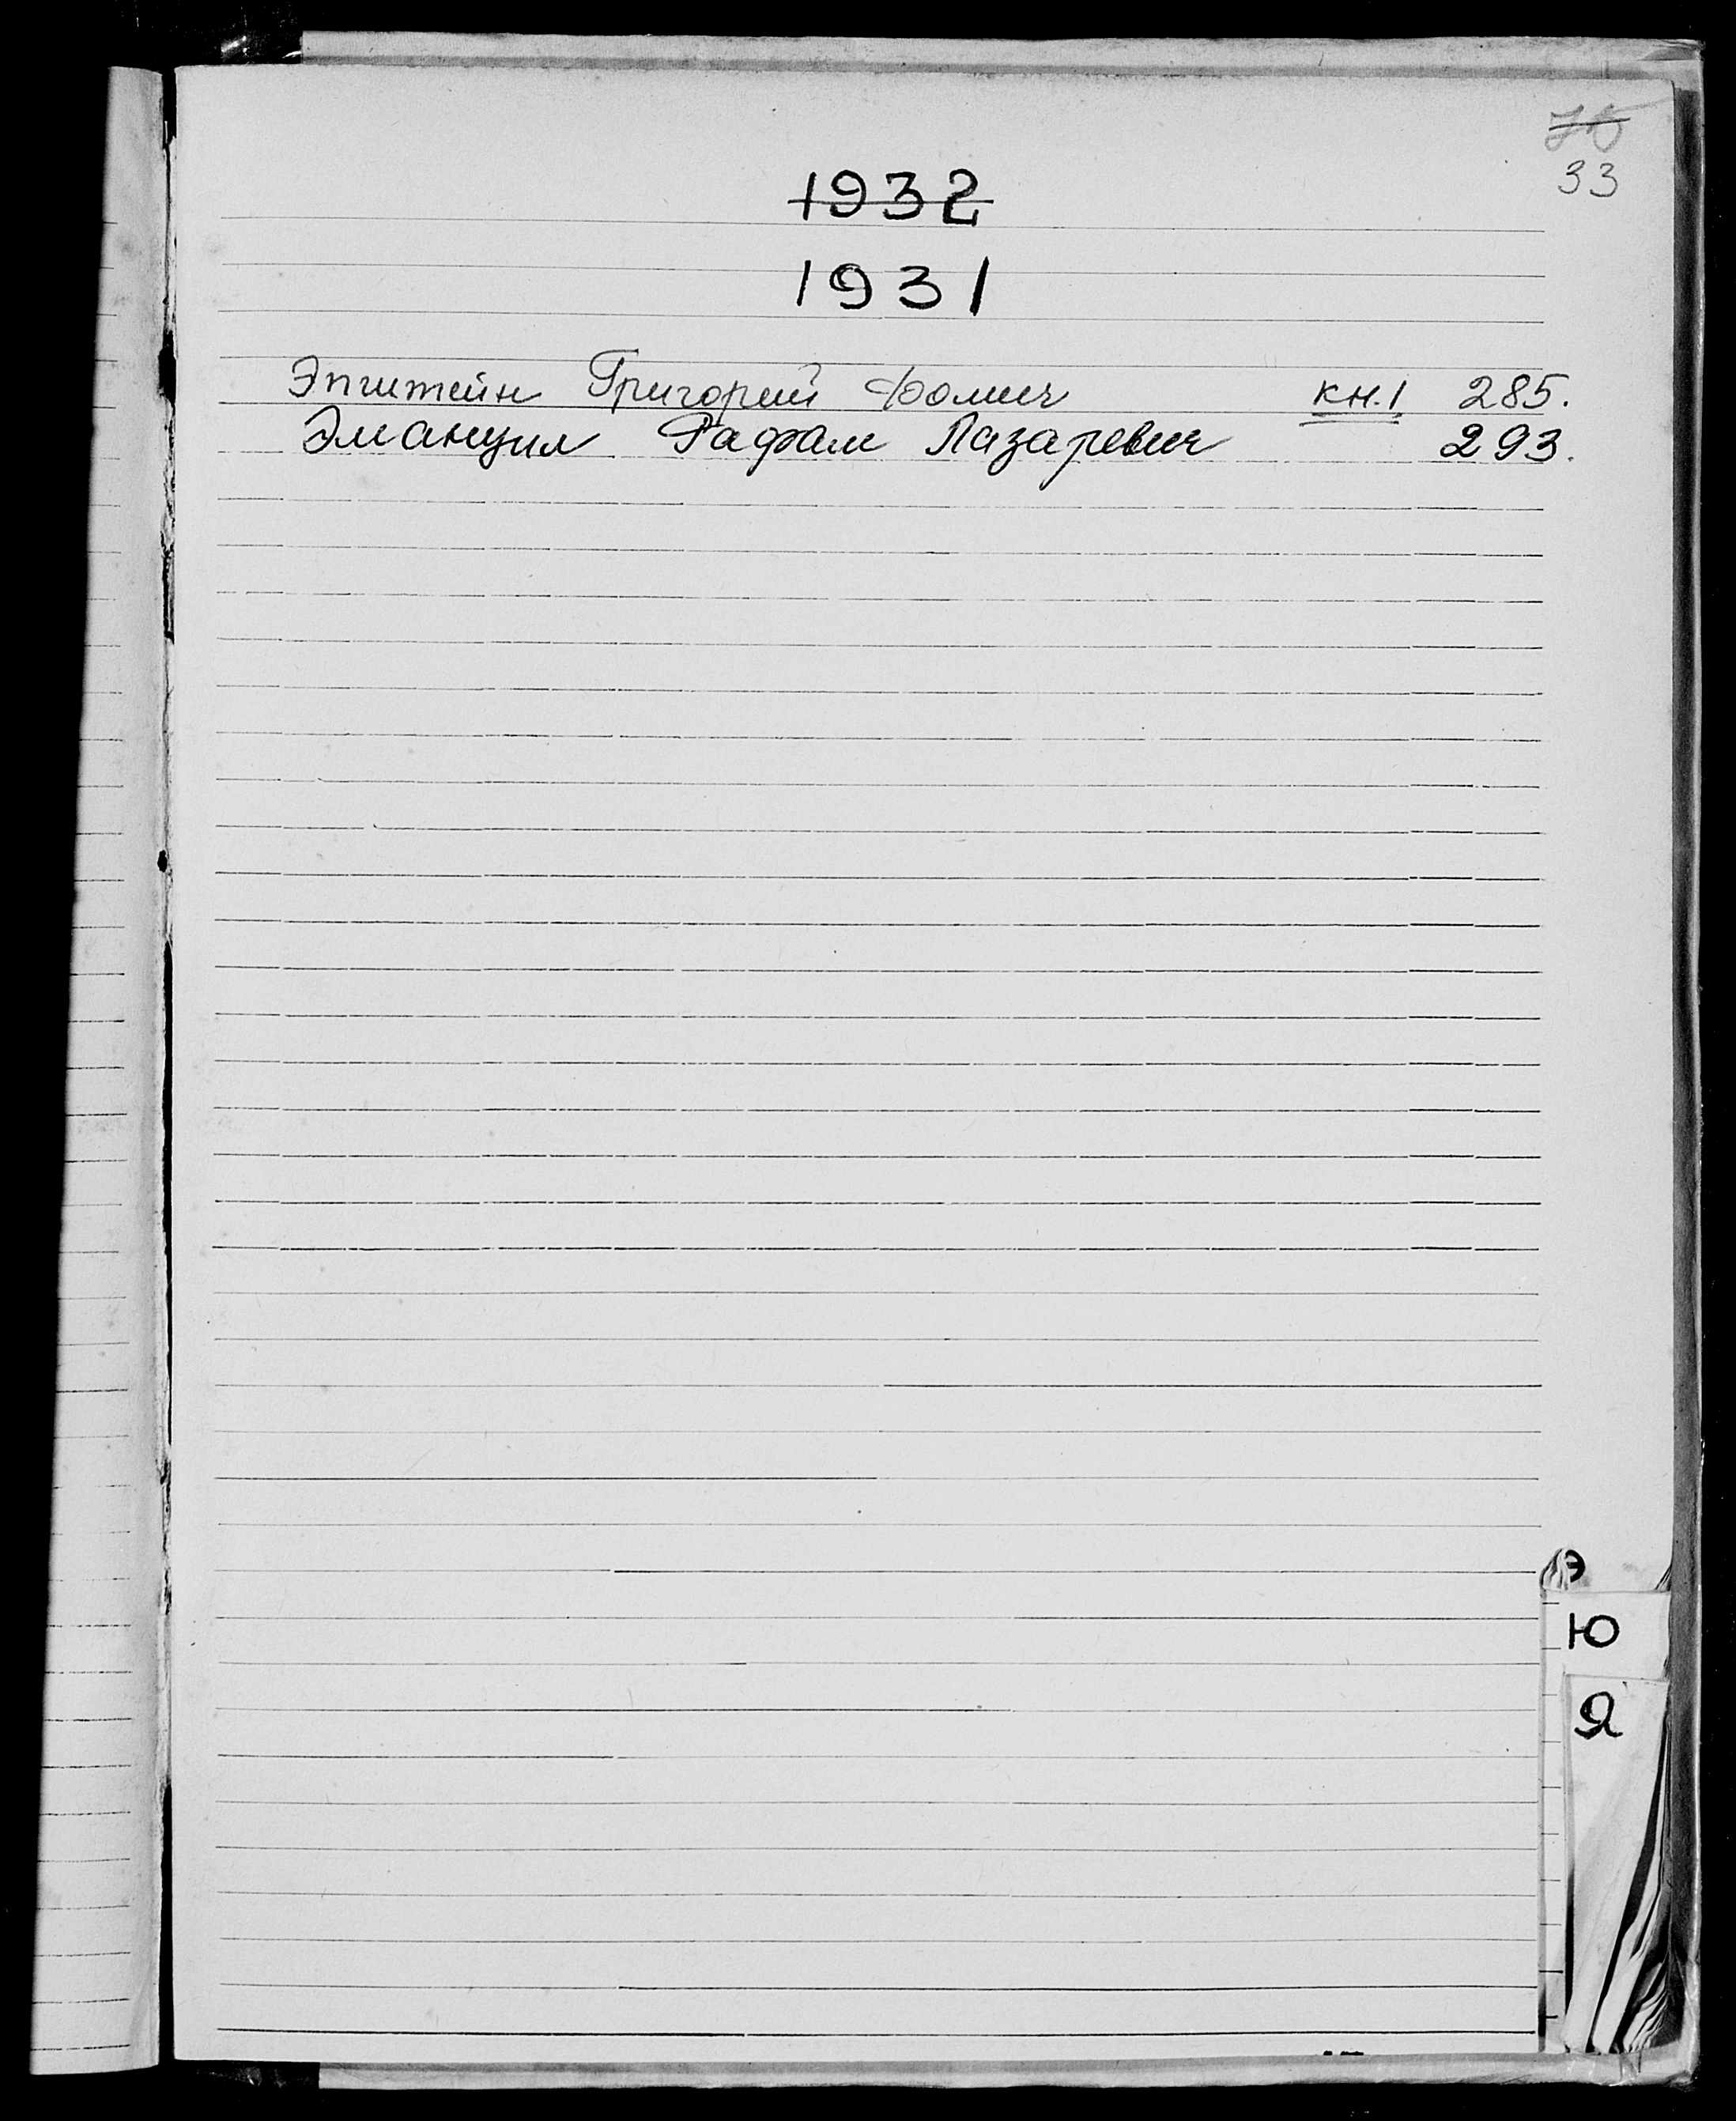 33
1932
1931
Эпштейн Григорий Фомич кн.1 285.
Эмануил Рафаил Лазаревич 293.
Э
Ю
Я